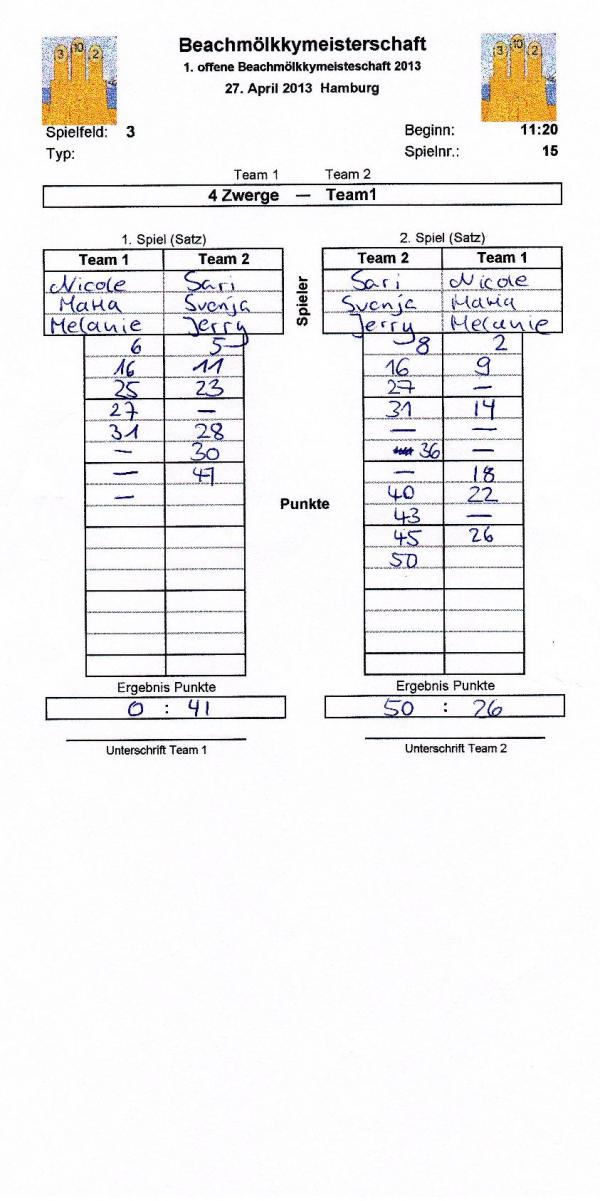 3 10 2
Beachmölkkymeisterschaft
3 10 2
1. offene Beachmölkkymeisteschaft 2013
27. April 2013 Hamburg
Spielfeld: 3 Beginn: 11:20
Typ: Spielnr.: 15
Team 1 Team 2
4 Zwerge — Team1
1. Spiel (Satz) 2. Spiel (Satz)
Team 1 Team 2 Team 2 Team 1
Nicole Sari Sari Nicole
Maria Svenja Svenja Maria
Melanie Jerry Jerry Melanie
Spieler
6 5 8 2
16 11 16 9
25 23 27 —
27 — 31 14
31 28 — —
— 30 36 —
— 41 — 18
— 40 22
43 —
45 26
50
Punkte
Ergebnis Punkte Ergebnis Punkte
0 : 41 50 : 26
Unterschrift Team 1 Unterschrift Team 2